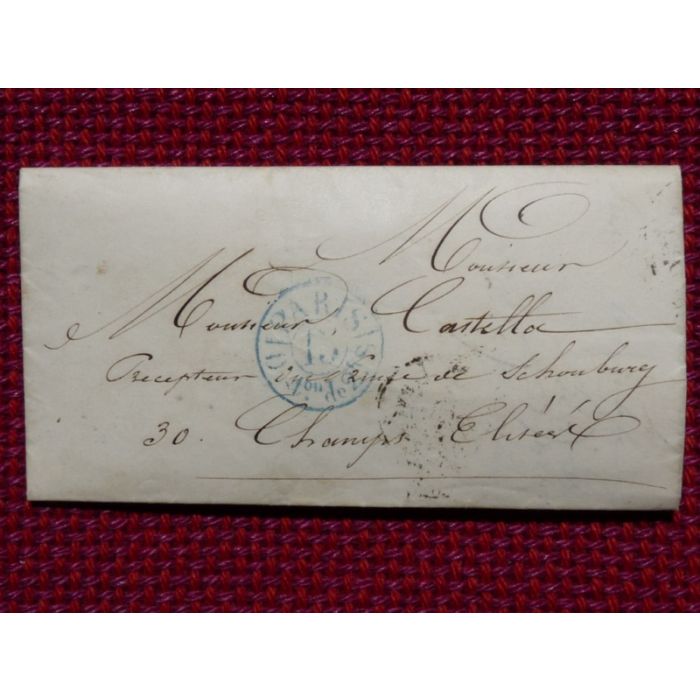 Monsieur
Monsieur Castella
Précepteur de Schonburg
30. Champs Elisées
PARIS
15